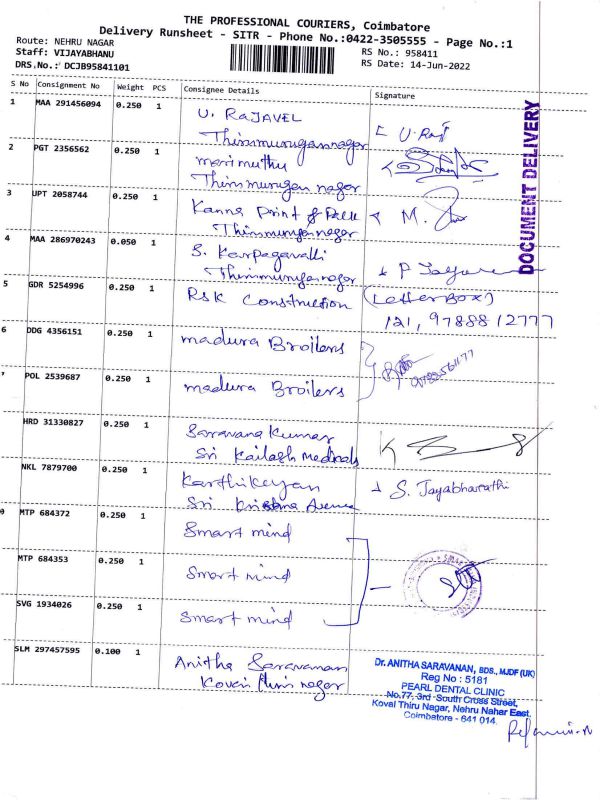 THE PROFESSIONAL COURIERS, Coimbatore
Delivery Runsheet - SITR - Phone No.:0422-3505555 - Page No.:1
Route: NEHRU NAGAR
Staff: VIJAYABHANU
DRS.No.: DCJB95841101
RS No.: 958411
RS Date: 14-Jun-2022
S No Consignment No Weight PCS Consignee Details Signature
1 MAA 291456094 0.250 1 U. RAJAVEL
Thirumurugannagar
U. Raj
2 PGT 2356562 0.250 1 marimuthu
Thirumurugan nagar
3 UPT 2058744 0.250 1 Kanna Print & Pack
Thirumurugannagar
M.
4 MAA 286970243 0.050 1 S. Karpagavalli
Thirumurugannagar
P
5 GDR 5254996 0.250 1 RSK Construction (Letter Box)
121, 9788812777
6 DDG 4356151 0.250 1 madura Broilers
POL 2539687 0.250 1 madura Broilers
HRD 31330827 0.250 1 Saravana Kumar
Sri Kailash medicals
K
NKL 7879700 0.250 1 Karthikeyan
Sri Krishna Avenue
S. Jayabharathi
0 MTP 684372 0.250 1 Smart mind
MTP 684353 0.250 1 Smart mind
SVG 1934026 0.250 1 Smart mind
SLM 297457595 0.100 1 Anitha Saravanan
Kovai thiru nagar
Dr. ANITHA SARAVANAN, BDS., MJDF (UK)
Reg No : 5181
PEARL DENTAL CLINIC
No.77, 3rd South Cross Street,
Kovai Thiru Nagar, Nehru Nahar East,
Coimbatore - 641 014.
DOCUMENT DELIVERY